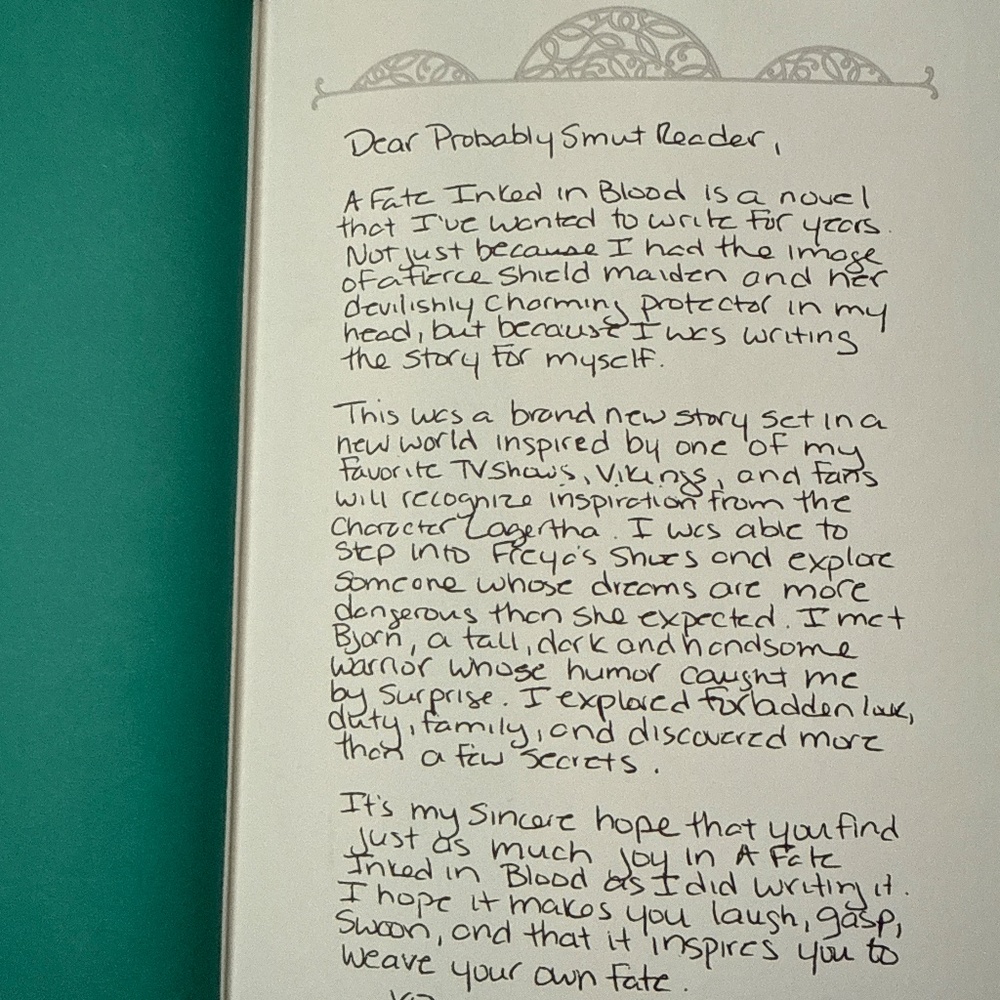 Dear Probably Smut Reader,
A Fate Inked in Blood is a novel
that I've wanted to write for years.
Not just because I had the image
of a fierce shield maiden and her
devilishly charming protector in my
head, but because I was writing
the story for myself.
This was a brand new story set in a
new world inspired by one of my
favorite TV shows, Vikings, and fans
will recognize inspiration from the
character Lagertha. I was able to
step into Freya's shoes and explore
someone whose dreams are more
dangerous than she expected. I met
Bjorn, a tall, dark and handsome
warrior whose humor caught me
by surprise. I explored forbidden love,
duty, family, and discovered more
than a few secrets.
It's my sincere hope that you find
just as much joy in A Fate
Inked in Blood as I did writing it.
I hope it makes you laugh, gasp,
swoon, and that it inspires you to
weave your own fate.